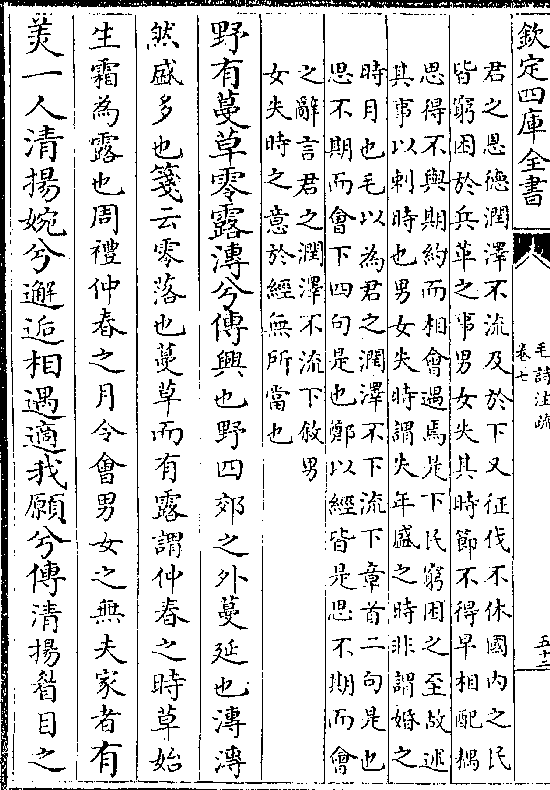 欽定四庫全書
毛詩注疏
卷七
五十二
君之恩德潤澤不流及於下又征伐不休國內之民
皆窮困於兵革之事男女失其時節不得早相配耦
思得不與期約而相會遇焉是下民窮困之至故述
其事以刺時也男女失時謂失年盛之時非謂婚之
時月也毛以為君之潤澤不下流下章首二句是也
思不期而會下四句是也鄭以經皆是思不期而會
之辭言君之潤澤不流下敘男
女失時之意於經無所當也
野有蔓草零露漙兮傳興也野四郊之外蔓延也漙漙
然盛多也箋云零落也蔓草而有露謂仲春之時草始
生霜為露也周禮仲春之月令會男女之無夫家者有
美一人清揚婉兮邂逅相遇適我願兮傳清揚眉目之